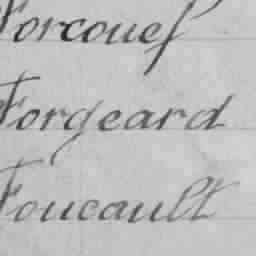 Forcouef
Forgeard
Foucault